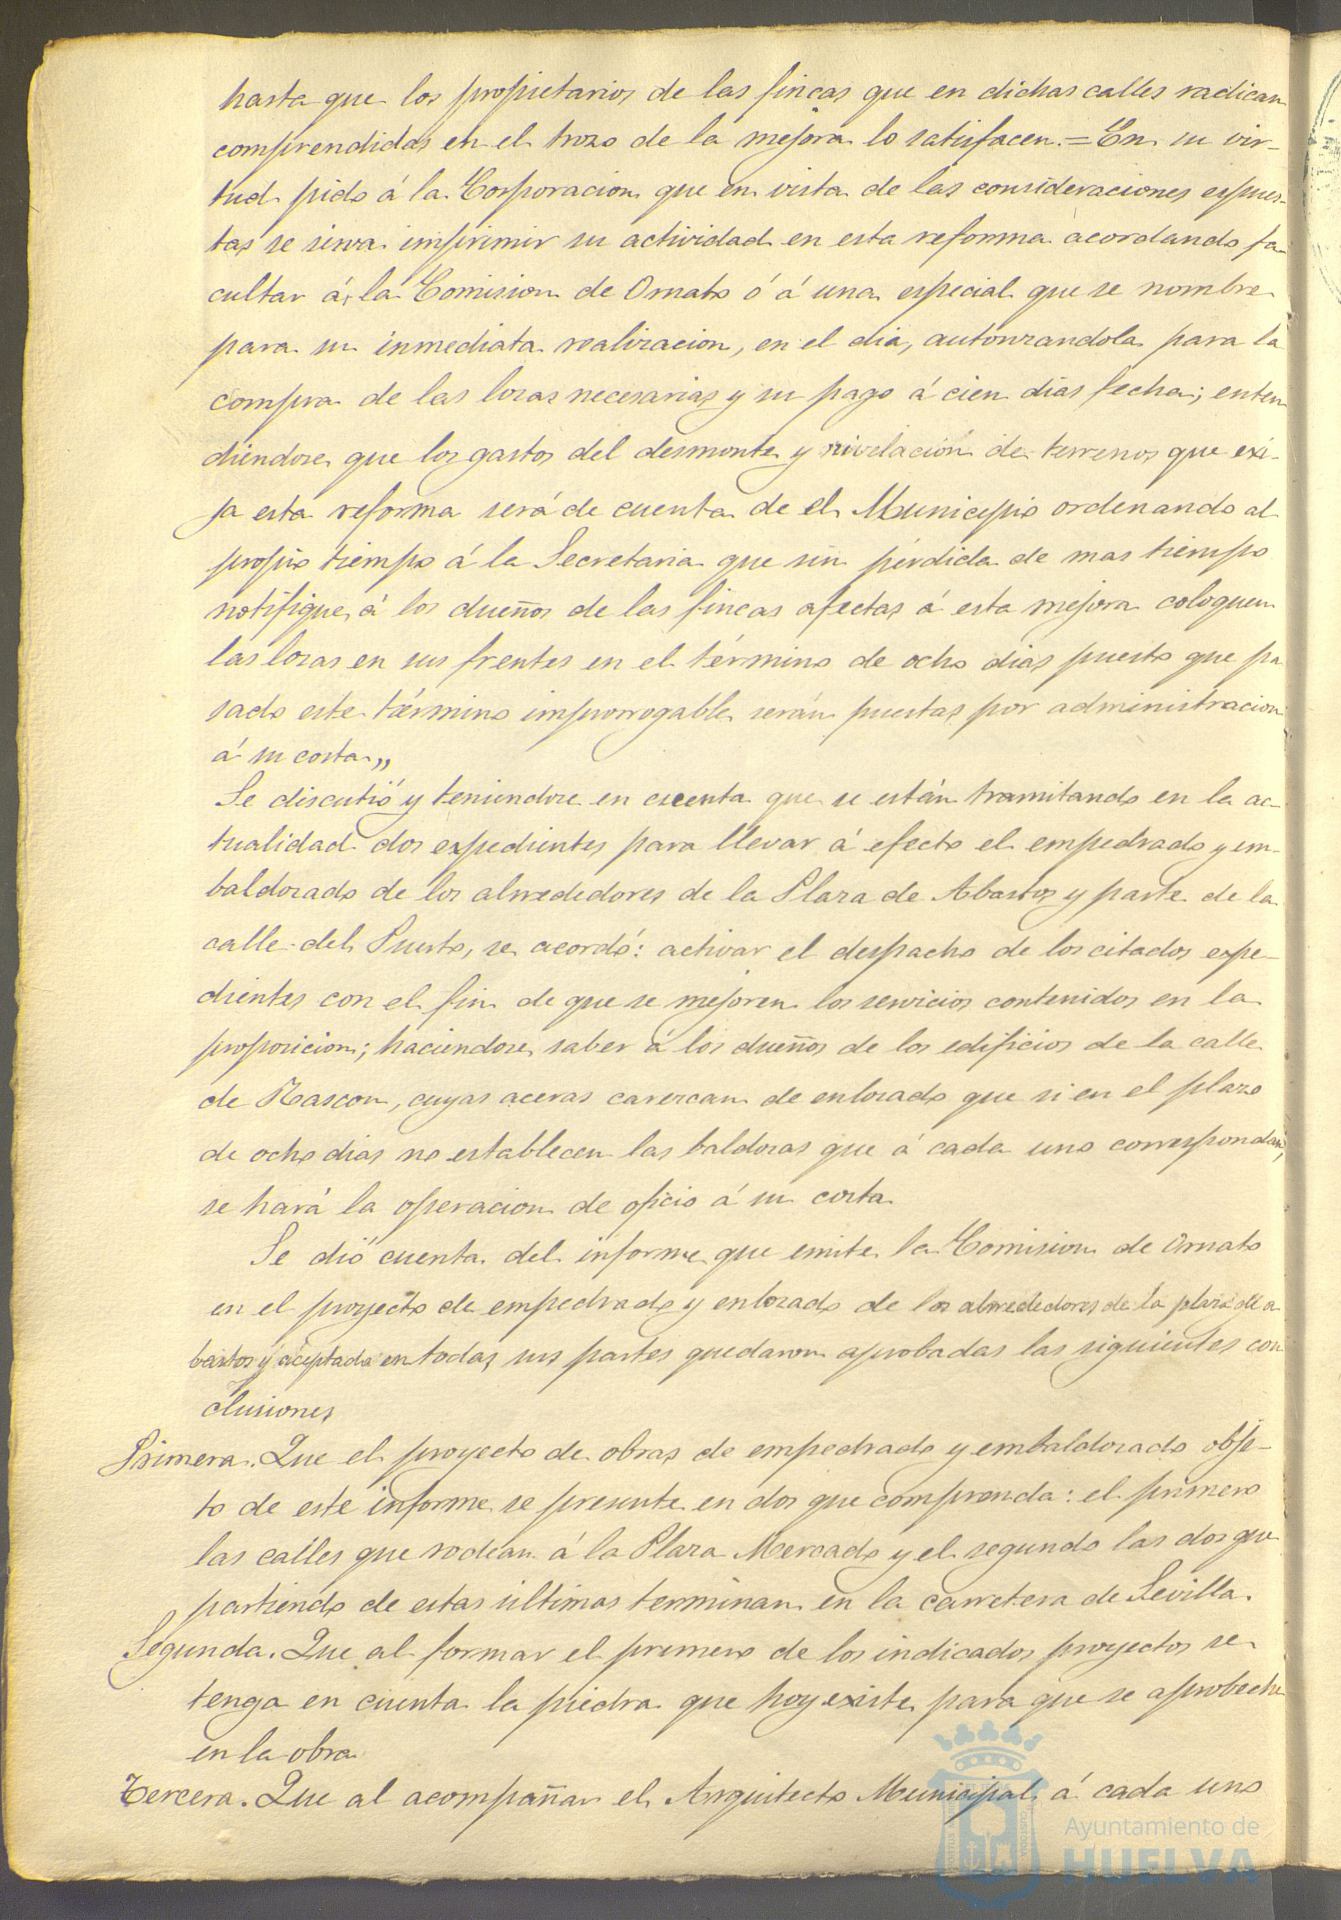 hasta que los propietarios de las fincas que en dichas calles radican
comprendidas en el trozo de la mejora lo satisfacen.=En su vir-
tud pido á la Corporacion que en vista de las consideraciones espues-
tas se sirva imprimir su actividad en esta reforma acordando fa-
cultar á la Comision de Ornato ó á una especial que se nombre
para su inmediata realizacion, en el dia, autorizandola para la
compra de las lozas necesarias y su pago á cien dias fecha; enten
diendose que los gastos del desmonte y nivelación de terrenos que exi-
ja esta reforma será de cuenta de el Municipio ordenando al
propio tiempo á la Secretaria que sin pérdida de mas tiempo
notifique á los dueños de las fincas afectas á esta mejora coloquen
las lozas en sus frentes en el término de ocho dias puesto que pa
sado este término improrrogable serán puestas por administracion
á su costa„
Se discutió y teniendose en cuenta que se están tramitando en la ac-
tualidad dos expedientes para llevar á efecto el empedrado y em-
baldosado de los alrededores de la Plaza de Abastos y parte de la
calle del Puerto, se acordó: activar el despacho de los citados expe-
dientes con el fin de que se mejoren los servicios contenidos en la
proposicion; haciendose saber á los dueños de los edificios de la calle
de Rascon, cuyas aceras carezcan de enlozado que si en el plazo
de ocho dias no establecen las baldosas que á cada uno correspondan,
se hará la operacion de oficio á su costa.
Se dió cuenta del informe que emite la Comision de Ornato
en el proyecto de empedrado y enlozado de los alrededores de la plaza de a
bastos y aceptado en todas sus partes quedaron aprobadas las siguientes con
clusiones
Primera. Que el proyecto de obras de empedrado y embaldosado obje-
to de este informe se presente en dos que comprenda: el primero
las calles que rodean á la Plaza Mercado y el segundo las dos que
partiendo de estas ultimas terminan en la carretera de Sevilla.
Segunda. Que al formar el primero de los indicados proyectos se
tenga en cuenta la piedra que hoy existe para que se aprobeche
en la obra
Tercera. Que al acompañar el Arquitecto Municipal á cada uno
Ayuntamiento de
HUELVA